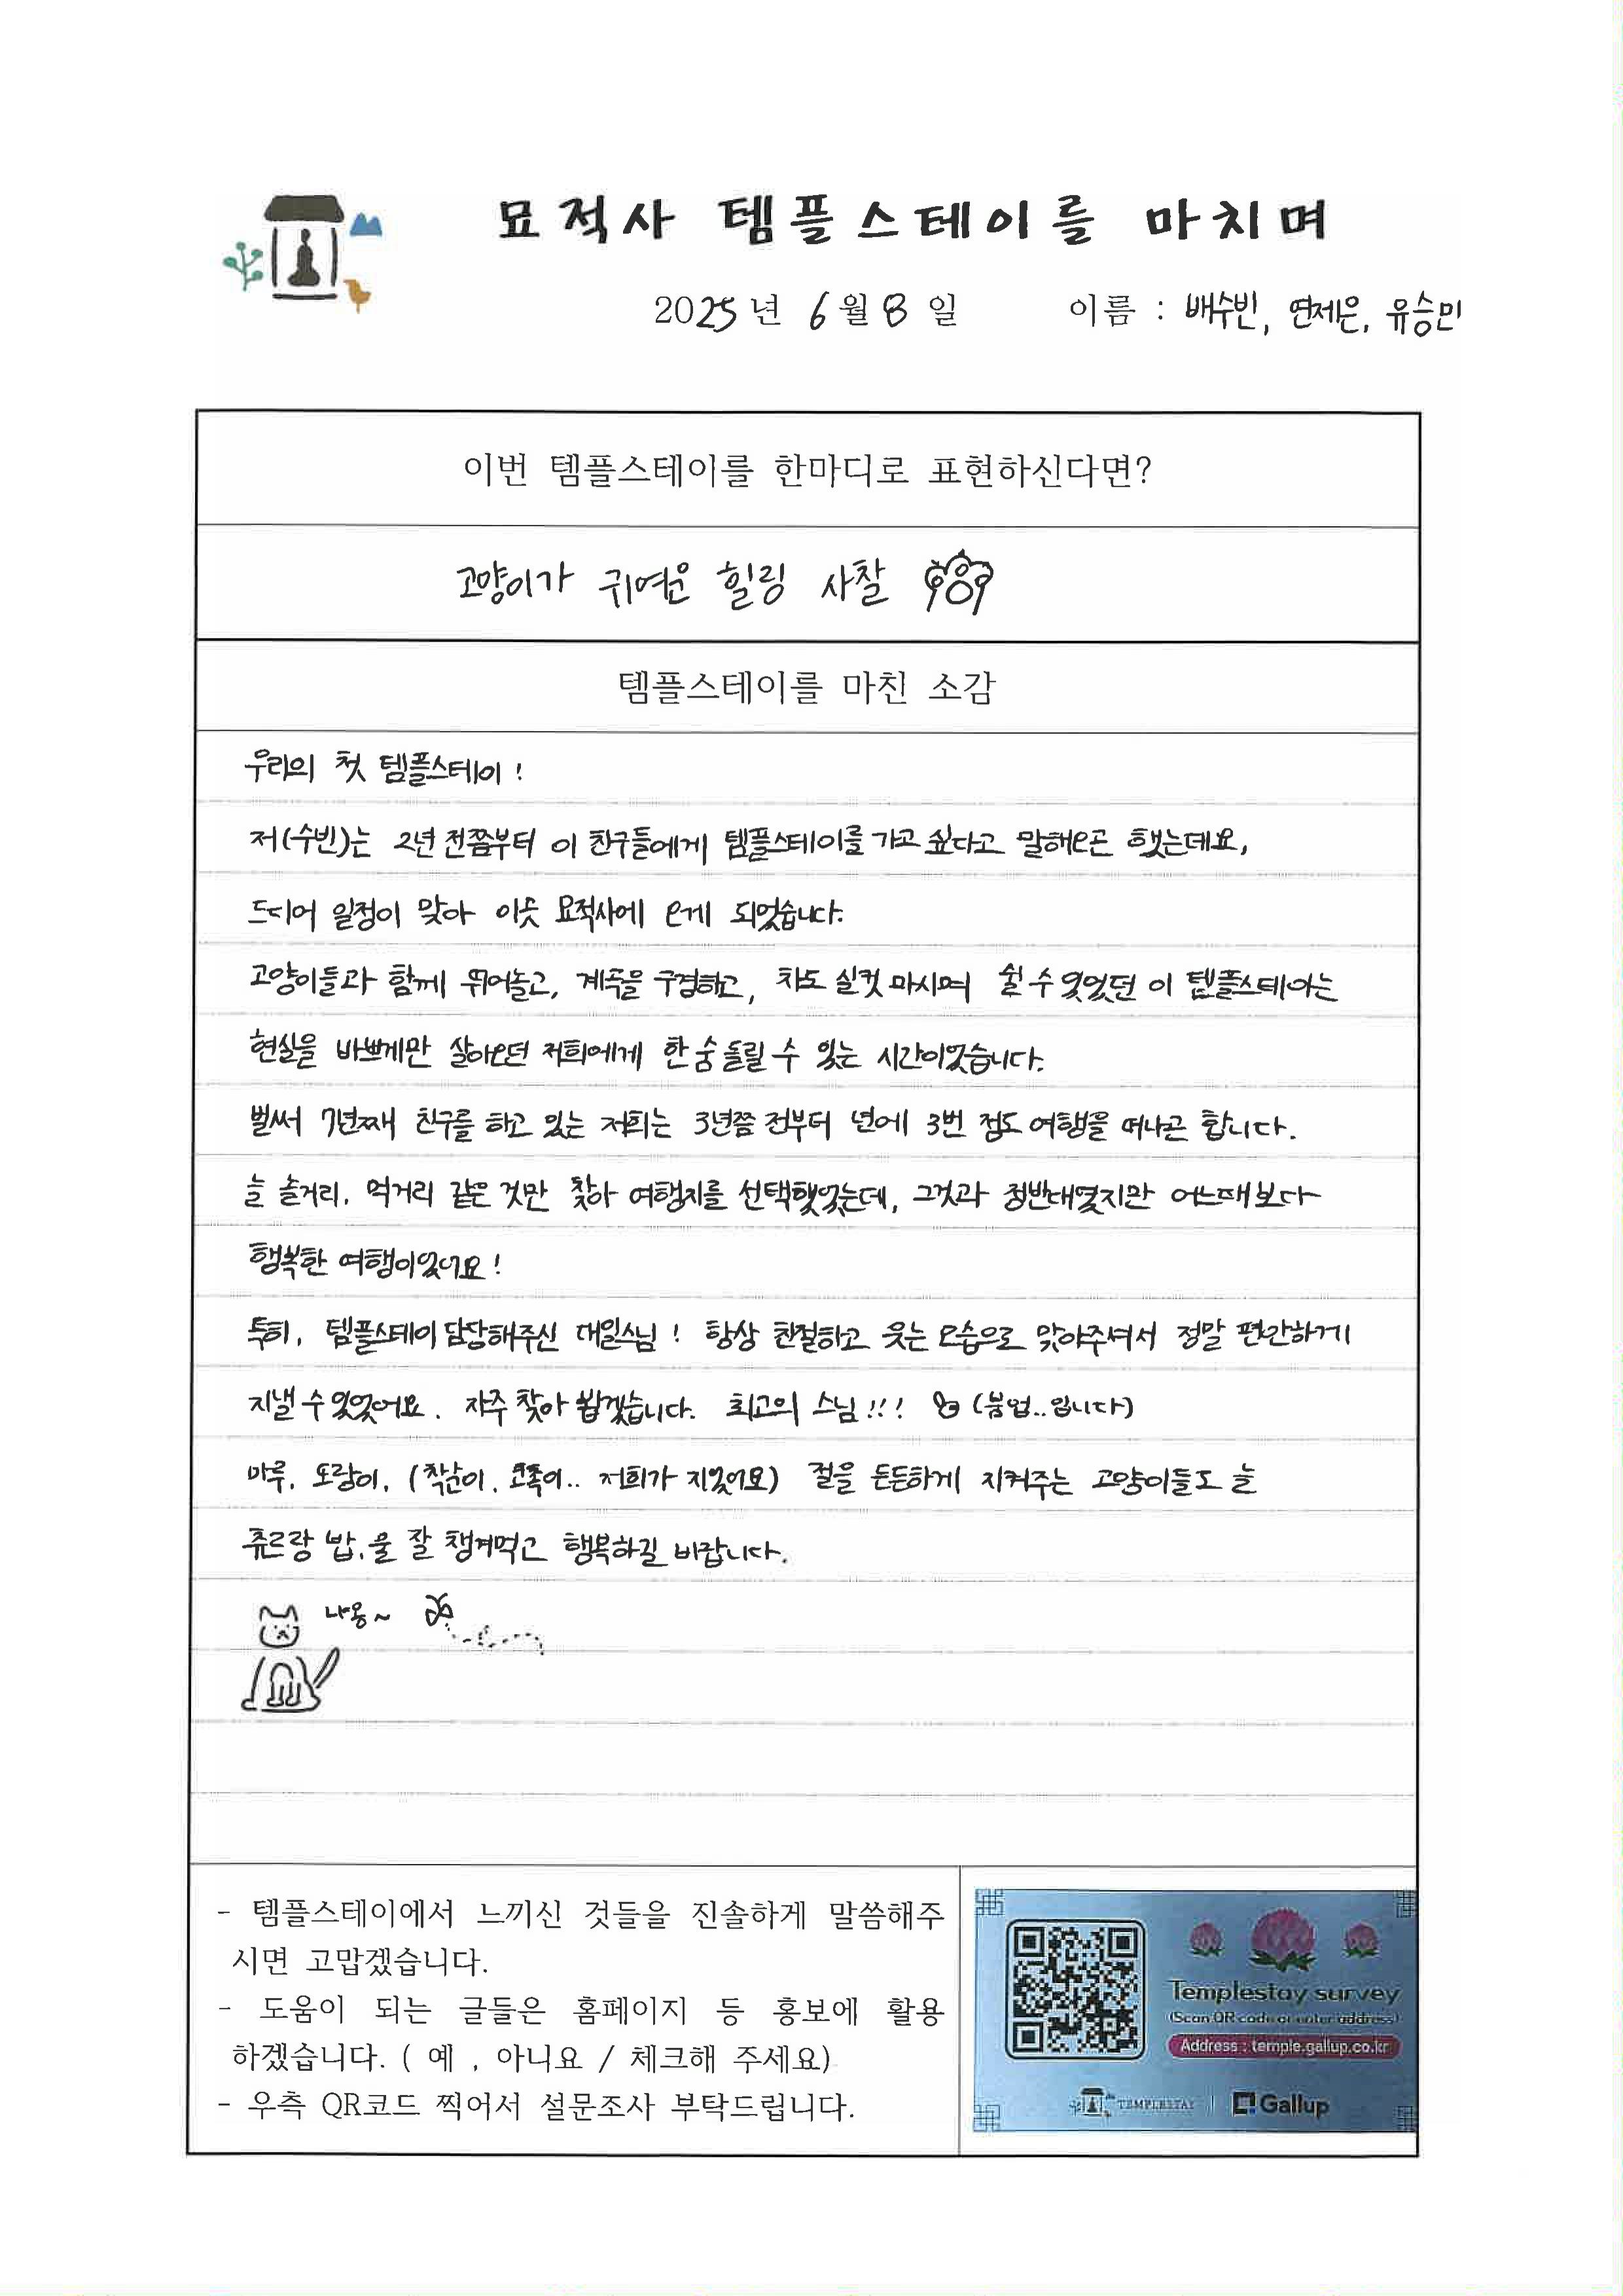 묘적사 템플스테이를 마치며
2025년 6월 8일 이름 : 배수빈, 연제은, 유승미
이번 템플스테이를 한마디로 표현하신다면?
고양이가 귀여운 힐링 사찰
템플스테이를 마친 소감
우리의 첫 템플스테이!
저(수빈)는 2년 전쯤부터 이 친구들에게 템플스테이를 가고 싶다고 말해오곤 했는데요,
드디어 일정이 맞아 이웃 묘적사에 오게 되었습니다.
고양이들과 함께 뛰어놀고, 계곡을 구경하고, 차도 실컷 마시며 쉴 수 있었던 이 템플스테이는
현실을 바쁘게만 살아오던 저희에게 한 숨 돌릴 수 있는 시간이었습니다.
벌써 7년째 친구를 하고 있는 저희는 3년쯤 전부터 년에 3번 정도 여행을 떠나곤 합니다.
늘 술거리, 먹거리 같은 것만 찾아 여행지를 선택했었는데, 그것과 정반대였지만 어느때보다
행복한 여행이었어요!
특히, 템플스테이 담당해주신 대일스님! 항상 친절하고 웃는 모습으로 맞아주셔서 정말 편안하게
지낼 수 있었어요. 자주 찾아 뵙겠습니다. 최고의 스님!!! (붐업..입니다)
마루, 도랑이, (착순이, 코쪽이.. 저희가 지었어요) 절을 든든하게 지켜주는 고양이들도 늘
츄르랑 밥, 물 잘 챙겨먹고 행복하길 바랍니다.
냐옹~
- 템플스테이에서 느끼신 것들을 진솔하게 말씀해주
시면 고맙겠습니다.
- 도움이 되는 글들은 홈페이지 등 홍보에 활용
하겠습니다. ( 예 , 아니요 / 체크해 주세요)
- 우측 QR코드 찍어서 설문조사 부탁드립니다.
Templestay survey
(Scan QR code or enter address)
Address : temple.gallup.co.kr
TEMPLESTAY | Gallup